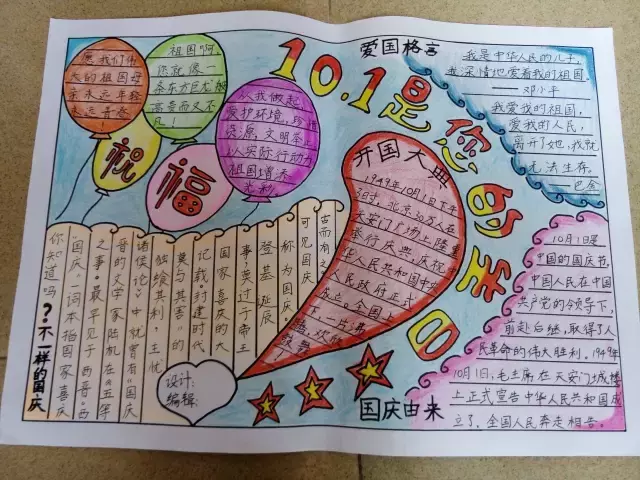 10.1是您的生日
愿我们伟
大的祖国母
亲永远年轻
永远青春
!
祖国啊,
您就像一
条东方巨龙,
高贵而又不
凡!
从我做起
爱护环境,珍惜
资源,文明茶
以实际行动为
祖国增添
光彩。
祝
福
爱国格言
我是中华人民的儿子,
我深情地爱着我的祖国。
——邓小平
我爱我的祖国,
爱我的人民,
离开了她,我就
无法生存。
——巴金
开国大典
1949年10月1日下午
30万人在
天安门广场上隆重
举行庆典,庆祝中
华人民共和国中央
人民政府正式
成立。全国上
下一片沸
腾,欢欣
鼓舞。
你知道吗?不一样的国庆
“国庆”一词本指国家喜庆
之事,最早见于西晋。西
晋的文学家陆机在《五等
诸侯论》中就曾有“国庆
独飨其利,主忧
莫与其害”的
记载,封建时代
国家喜庆的大
事,莫过于帝王
登基诞辰
称为国庆,
可见国庆
古而有之
设计:
编辑:
国庆由来
10月1日是
中国的国庆节,
中国人民在中国
共产党的领导下,
前赴后继,取得了人
民革命的伟大胜利。1949年
10月1日,毛主席在天安门城楼
上正式宣告中华人民共和国成
立了,全国人民奔走相告。